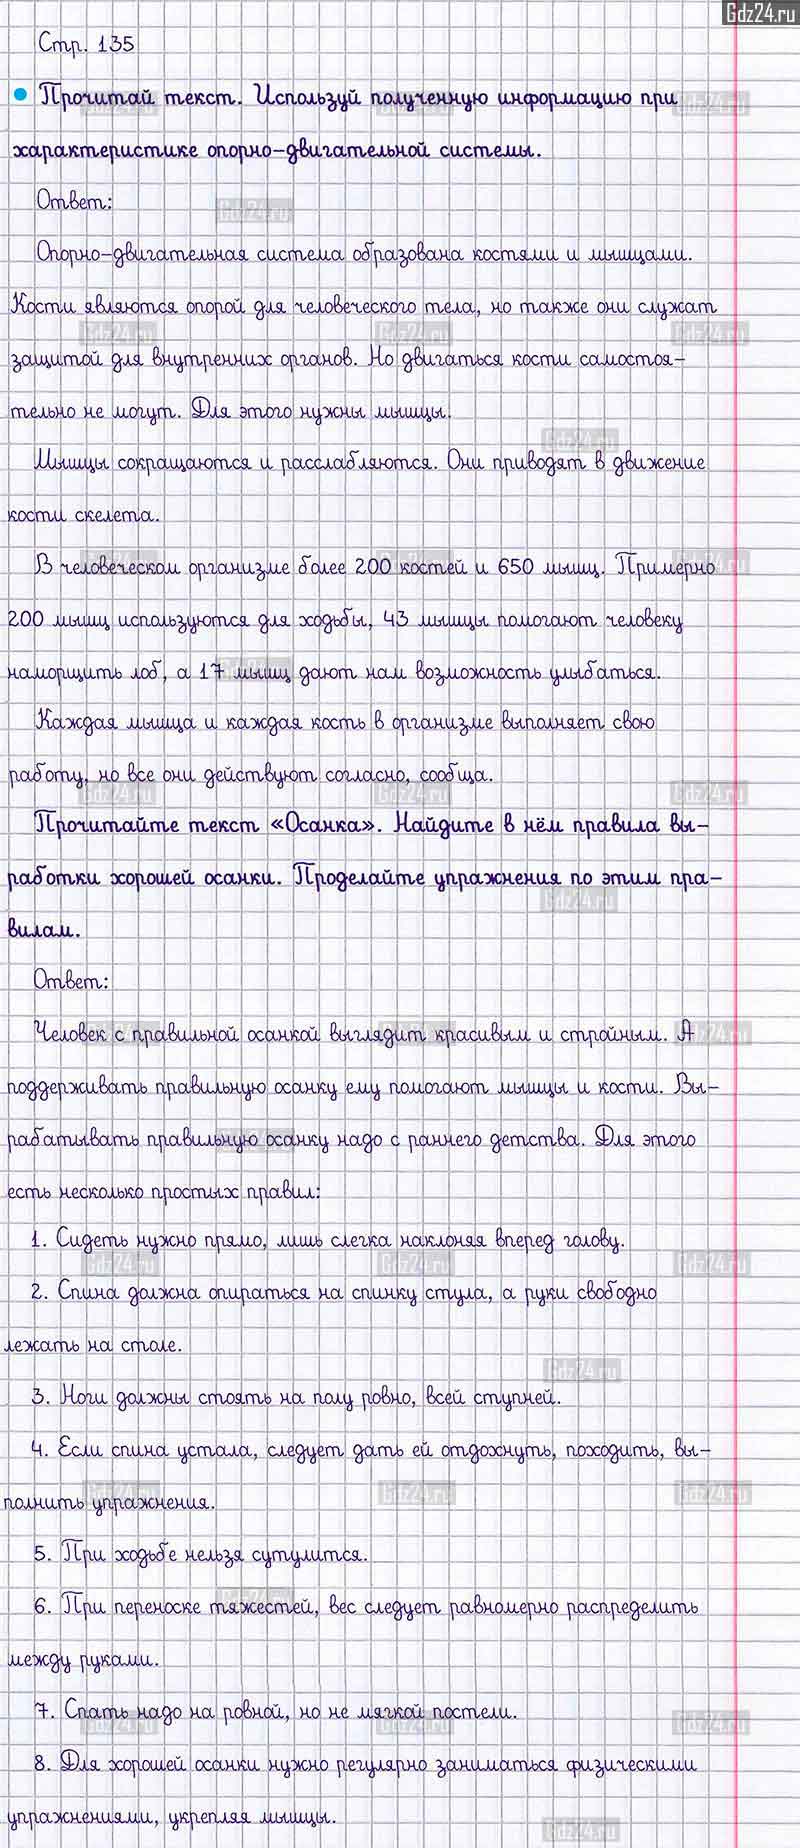 Gdz24.ru
Стр. 135
Прочитай текст. Используй полученную информацию при
характеристике опорно-двигательной системы.
Ответ:
Опорно-двигательная система образована костями и мышцами.
Кости являются опорой для человеческого тела, но также они служат
защитой для внутренних органов. Но двигаться кости самостоя-
тельно не могут. Для этого нужны мышцы.
Мышцы сокращаются и расслабляются. Они приводят в движение
кости скелета.
В человеческом организме более 200 костей и 650 мышц. Примерно
200 мышц используются для ходьбы, 43 мышцы помогают человеку
наморщить лоб, а 17 мышц дают нам возможность улыбаться.
Каждая мышца и каждая кость в организме выполняет свою
работу, но все они действуют согласно, сообща.
Прочитайте текст «Осанка». Найдите в нём правила вы-
работки хорошей осанки. Проделайте упражнения по этим пра-
вилам.
Ответ:
Человек с правильной осанкой выглядит красивым и стройным. А
поддерживать правильную осанку ему помогают мышцы и кости. Вы-
рабатывать правильную осанку надо с раннего детства. Для этого
есть несколько простых правил:
1. Сидеть нужно прямо, лишь слегка наклоняя вперед голову.
2. Спина должна опираться на спинку стула, а руки свободно
лежать на столе.
3. Ноги должны стоять на полу ровно, всей ступней.
4. Если спина устала, следует дать ей отдохнуть, походить, вы-
полнить упражнения.
5. При ходьбе нельзя сутулится.
6. При переноске тяжестей, вес следует равномерно распределить
между руками.
7. Спать надо на ровной, но не мягкой постели.
8. Для хорошей осанки нужно регулярно заниматься физическими
упражнениями, укрепляя мышцы.